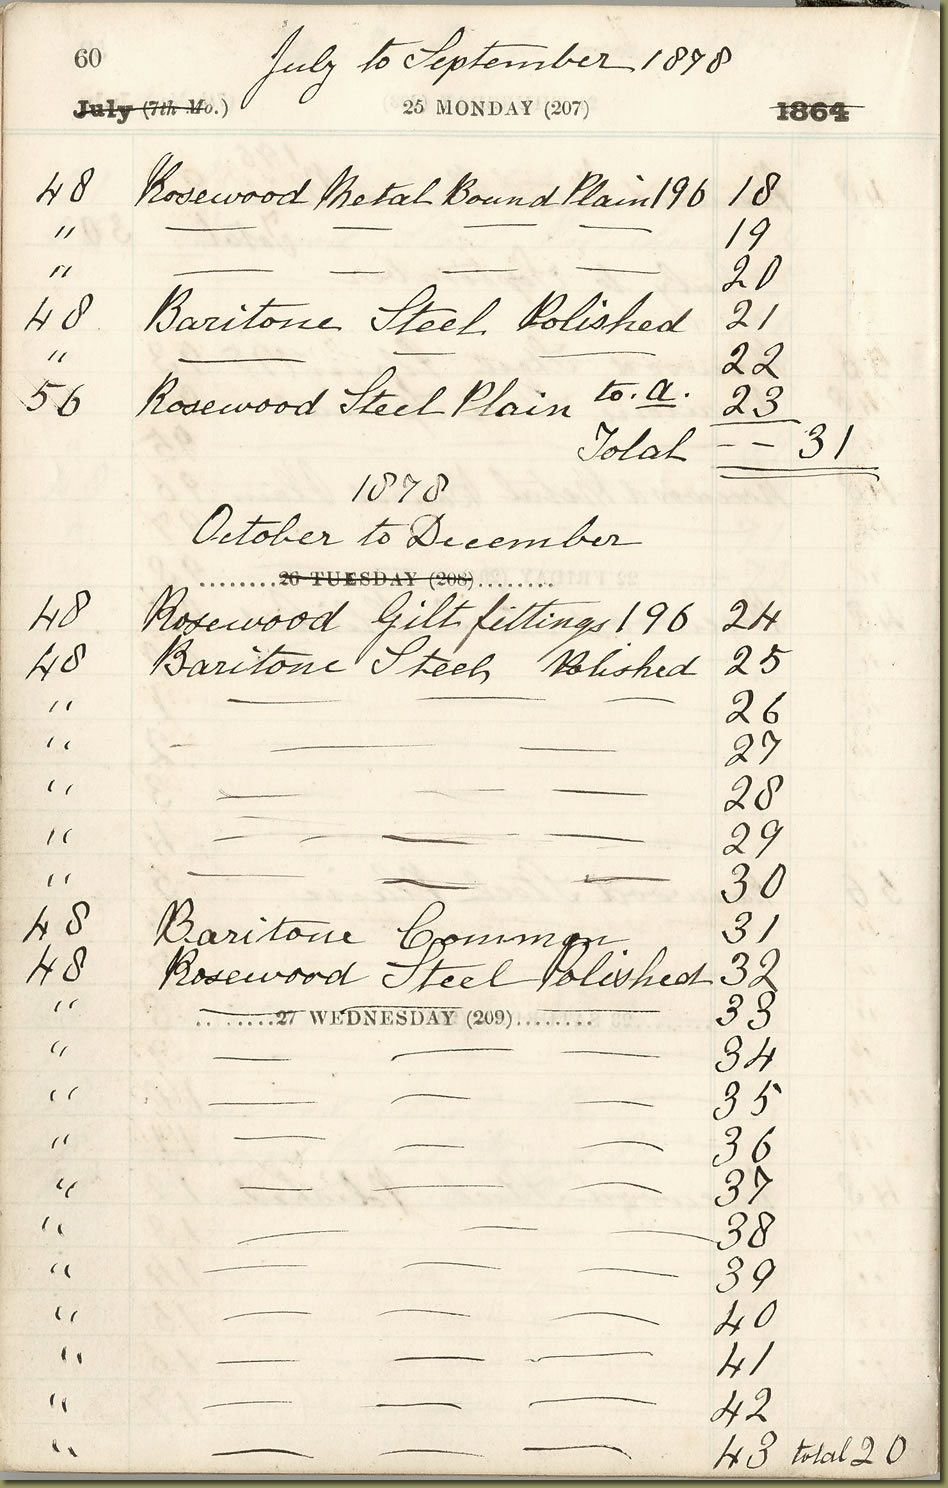 60 July to September 1878
July (7th Mo.) 25 MONDAY (207) 1864
48 Rosewood Metal Bound Plain 196 18
" — — — — 19
" — — — — 20
48 Baritone Steel Polished 21
" — — — 22
56 Rosewood Steel Plain to. a. 23
Total - - 31
1878
October to December
........26 TUESDAY (208)........
48 Rosewood Gilt fittings 196 24
48 Baritone Steel Polished 25
" — — — 26
" — — — 27
" — — — 28
" — — — 29
" — — — 30
48 Baritone Common 31
48 Rosewood Steel Polished 32
" — — — 33
........27 WEDNESDAY (209)........
" — — — 34
" — — — 35
" — — — 36
" — — — 37
" — — — 38
" — — — 39
" — — — 40
" — — — 41
" — — — 42
" — — — 43 total 20